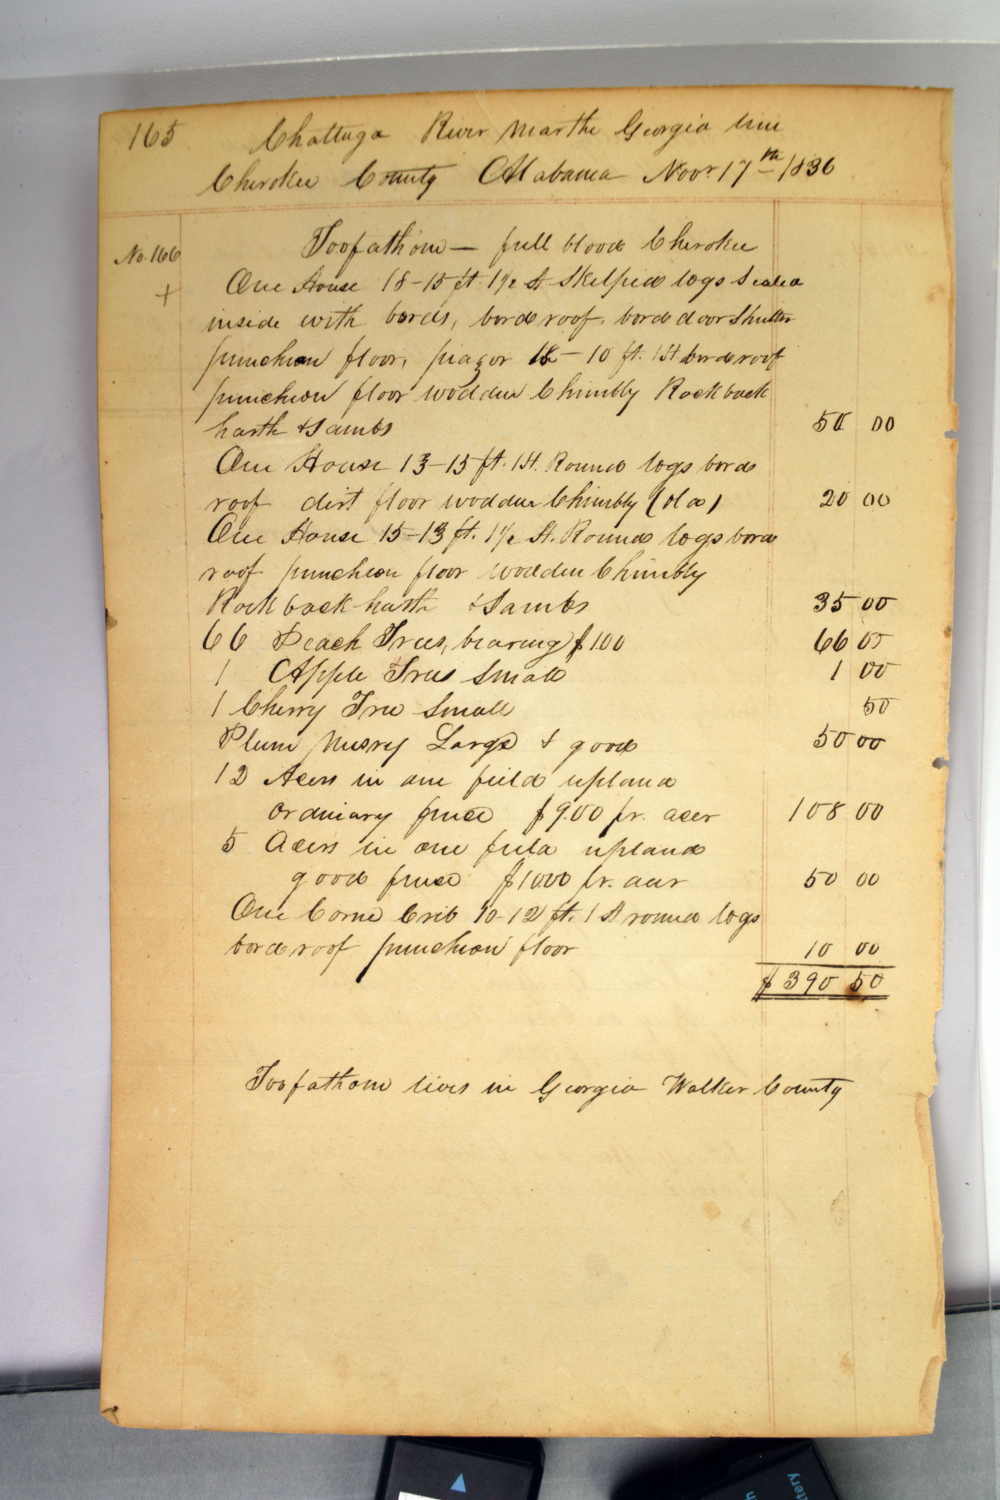 165 Chattuga River Near the Georgia line
Cherokee County Alabama Novr 17th 1836
No. 166 Toofathom — full blood Cherokee
+ One House 18-15 ft. 1½ St Skelped logs Sealed
inside with bords, bord roof, bord door Shutter
puncheon floor, piazor 18-10 ft. 1 St bord roof
puncheon floor wodden Chimbly Rock back
harth & Jambs 50 00
One House 13-15 ft. 1 St. Round logs bord
roof dirt floor wodden Chimbly (old) 20 00
One House 15-13 ft. 1½ St. Round logs bord
roof puncheon floor wodden Chimbly
Rock back harth & Jambs 35 00
66 Peach Trees, bearing $1.00 66 00
1 Apple Tree Small 1 00
1 Cherry Tree Small 50
Plum Nusry Large & good 50 00
12 Acers in one field upland
ordinary fence $9.00 pr. acer 108 00
5 Acers in one field upland
good fence $10.00 pr. acer 50 00
One Corne Crib 10-12 ft. 1 St round logs
bord roof puncheon floor 10 00
$ 390 50
Toofathom lives in Georgia Walker County
ttery